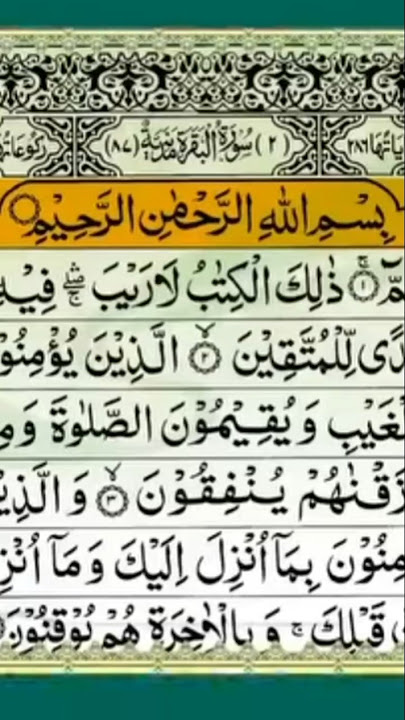 ياتها ٢٨٦ (٢) سُوْرَةُ الْبَقَرَةِ مَدَنِيَّةٌ (٨٧) ركوعاتها
بِسْمِ اللهِ الرَّحْمٰنِ الرَّحِيْمِ
مّٓ ۚ﴿١﴾ ذٰلِكَ الْكِتٰبُ لَا رَيْبَ ۛۖۚ فِيْهِ
دًى لِّلْمُتَّقِيْنَ ۙ﴿٢﴾ الَّذِيْنَ يُؤْمِنُوْ
لْغَيْبِ وَيُقِيْمُوْنَ الصَّلٰوةَ وَمِ
زَقْنٰهُمْ يُنْفِقُوْنَ ۙ﴿٣﴾ وَالَّذِيْ
مِنُوْنَ بِمَاۤ اُنْزِلَ اِلَيْكَ وَمَاۤ اُنْزِ
قَبْلِكَ ۚ وَبِالْاٰخِرَةِ هُمْ يُوْقِنُوْنَ